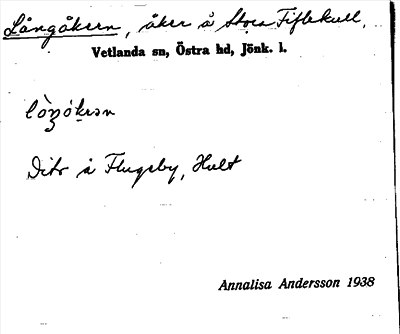 Långåkern, åker å Stora Fiflekull,
Vetlanda sn, Östra hd, Jönk. l.
Dito å Flugeby, Hult
Annalisa Andersson 1938